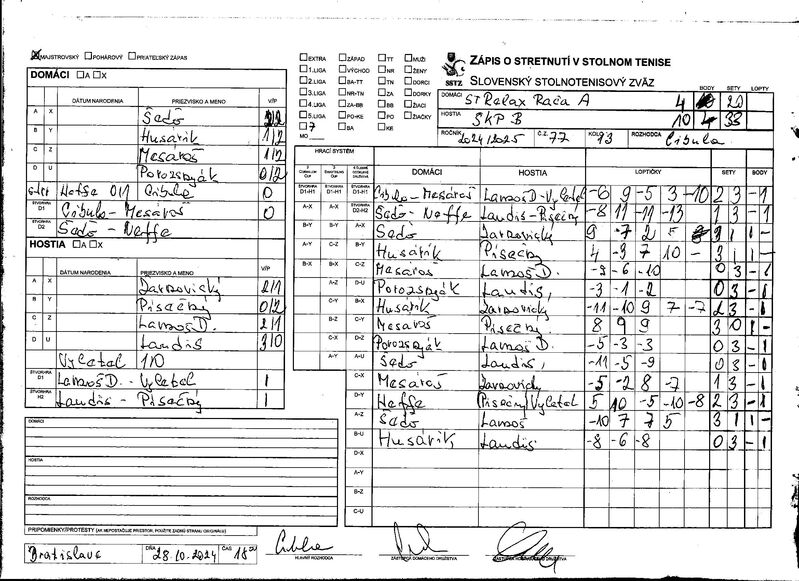 MAJSTROVSKÝ POHÁROVÝ PRIATEĽSKÝ ZÁPAS
DOMÁCI A X
DÁTUM NARODENIA PRIEZVISKO A MENO V/P
A X Šedo 2/2
B Y Husárik 1/2
C Z Mesároš 1/2
D U Porozspyák 0/2
Heffe 0/1 Cibula 0
ŠTVORHRA D1 Cibula - Mesároš 0
ŠTVORHRA D2 Šedo - Neffe
HOSTIA A X
DÁTUM NARODENIA PRIEZVISKO A MENO V/P
A X Jarsovický 2/1
B Y Písečný 0/2
C Z Lamoš D. 2/1
D U Landis 3/0
Vyletal 1/0
ŠTVORHRA D1 Lamoš D. - Vyletal 1
ŠTVORHRA H2 Landis - Písečný 1
DOMÁCI
HOSTIA
ROZHODCA
PRIPOMIENKY/PROTESTY (AK NEPOSTAČUJE PRIESTOR, POUŽITE ZADNÚ STRANU ORIGINÁLU)
Bratislava DŇA 28.10.2024 ČAS 18 00
HLAVNÝ ROZHODCA
ZÁSTUPCA DOMÁCEHO DRUŽSTVA
EXTRA ZÁPAD TT MUŽI
1.LIGA VÝCHOD NR ŽENY
2.LIGA BA-TT TN DORCI
3.LIGA NR-TN ZA DORKY
4.LIGA ZA-BB BB ŽIACI
5.LIGA PO-KE PO ŽIAČKY
7 BA KE
MO
SSTZ
ZÁPIS O STRETNUTÍ V STOLNOM TENISE
SLOVENSKÝ STOLNOTENISOVÝ ZVÄZ
BODY SETY LOPTY
DOMÁCI ST Relax Rača A 4 20
HOSTIA SKP B 10 33
ROČNÍK 2024/2025 Č.Z. 77 KOLO 13 ROZHODCA Cibula
HRACÍ SYSTÉM
DOMÁCI HOSTIA LOPTIČKY SETY BODY
ŠTVORHRA D1-H1 ŠTVORHRA D1-H1 ŠTVORHRA D1-H1 Cibula - Mesároš Lamoš D - Vyletal -6 9 -5 3 -10 2 3 - 1
A-X A-X ŠTVORHRA D2-H2 Šedo - Neffe Landis - Písečný -8 11 -11 -13 1 3 - 1
B-Y B-Y A-X Šedo Jarsovický 9 -7 2 5 3 1 1 -
A-Y C-Z B-Y Husárik Písečný 4 -3 7 10 - 3 1 1 -
B-X B-X C-Z Mesároš Lamoš D. -9 -6 -10 0 3 - 1
A-Z D-U Porozspyák Landis, -3 -1 -2 0 3 - 1
C-Y B-X Husárik Jarsovický -11 -10 9 7 -7 2 3 - 1
B-Z C-Y Mesároš Písečný 8 9 9 3 0 1 -
C-X D-Z Porozspyák Lamoš D. -5 -3 -3 0 3 - 1
A-Y A-U Šedo Landis, -11 -5 -9 0 3 - 1
C-X Mesároš Jarsovický -5 -2 8 -7 1 3 - 1
D-Y Heffe Písečný/Vyletal 5 10 -5 -10 -8 2 3 - 1
A-Z Šedo Lamoš -10 7 7 5 3 1 1 -
B-U Husárik Landis -8 -6 -8 0 3 - 1
D-X
A-Y
B-Z
C-U